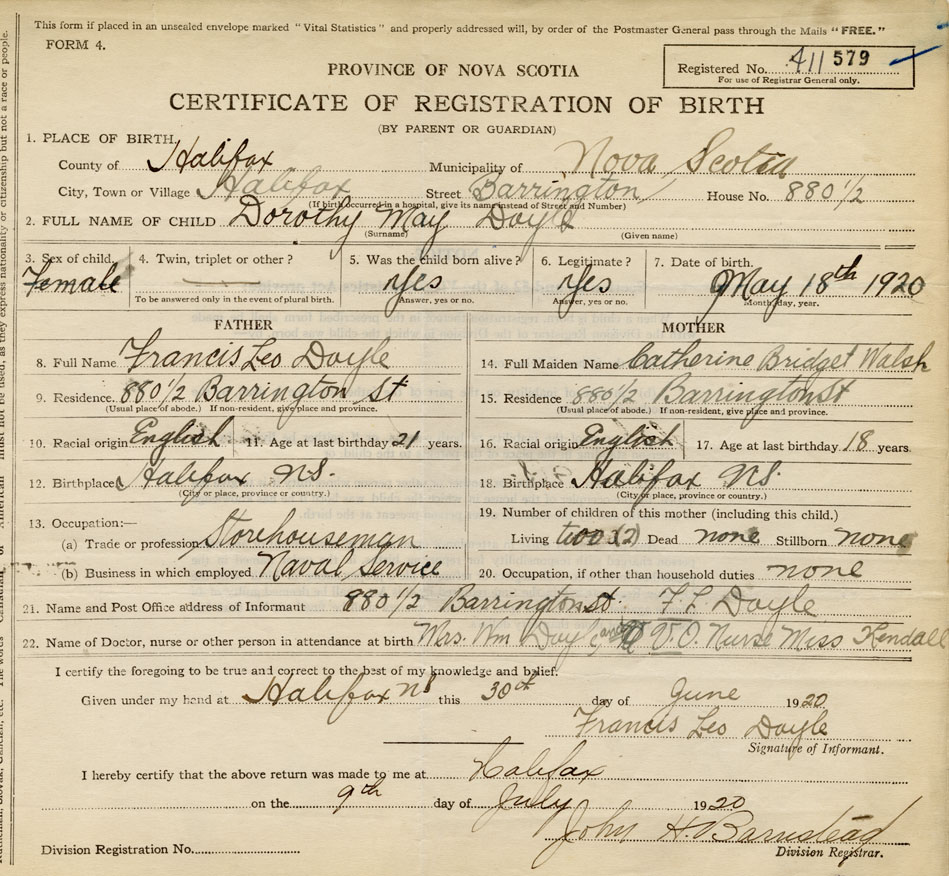 This form if placed in an unsealed envelope marked "Vital Statistics" and properly addressed will, by order of the Postmaster General pass through the Mails "FREE."
FORM 4.
Registered No. 411 579
For use of Registrar General only.
PROVINCE OF NOVA SCOTIA
CERTIFICATE OF REGISTRATION OF BIRTH
(BY PARENT OR GUARDIAN)
1. PLACE OF BIRTH,
County of Halifax Municipality of Nova Scotia
City, Town or Village Halifax Street Barrington House No. 880 1/2
(If birth occurred in a hospital, give its name instead of Street and Number)
2. FULL NAME OF CHILD Dorothy May Doyle
(Surname) (Given name)
3. Sex of child. Female
4. Twin, triplet or other?
To be answered only in the event of plural birth.
5. Was the child born alive? Yes
Answer, yes or no.
6. Legitimate? Yes
Answer, yes or no.
7. Date of birth. May 18th 1920
Month, day, year.
FATHER
8. Full Name Francis Leo Doyle
9. Residence. 880 1/2 Barrington St
(Usual place of abode.) If non-resident, give place and province.
10. Racial origin English 11. Age at last birthday 21 years.
12. Birthplace Halifax NS.
(City or place, province or country.)
13. Occupation:—
(a) Trade or profession Storehouseman
(b) Business in which employed Naval Service
MOTHER
14. Full Maiden Name Catherine Bridget Walsh
15. Residence 880 1/2 Barrington St
(Usual place of abode.) If non-resident, give place and province.
16. Racial origin English 17. Age at last birthday 18 years.
18. Birthplace Halifax NS.
(City or place, province or country.)
19. Number of children of this mother (including this child.)
Living two (2) Dead none Stillborn none
20. Occupation, if other than household duties none
21. Name and Post Office address of Informant 880 1/2 Barrington St. F L Doyle
22. Name of Doctor, nurse or other person in attendance at birth Mrs. Wm Doyle and V.O. Nurse Miss Kendall
I certify the foregoing to be true and correct to the best of my knowledge and belief.
Given under my hand at Halifax NS this 30th day of June 1920
Francis Leo Doyle
Signature of Informant.
I hereby certify that the above return was made to me at Halifax
on the 9th day of July 1920
John H. Barnstead
Division Registrar.
Division Registration No.